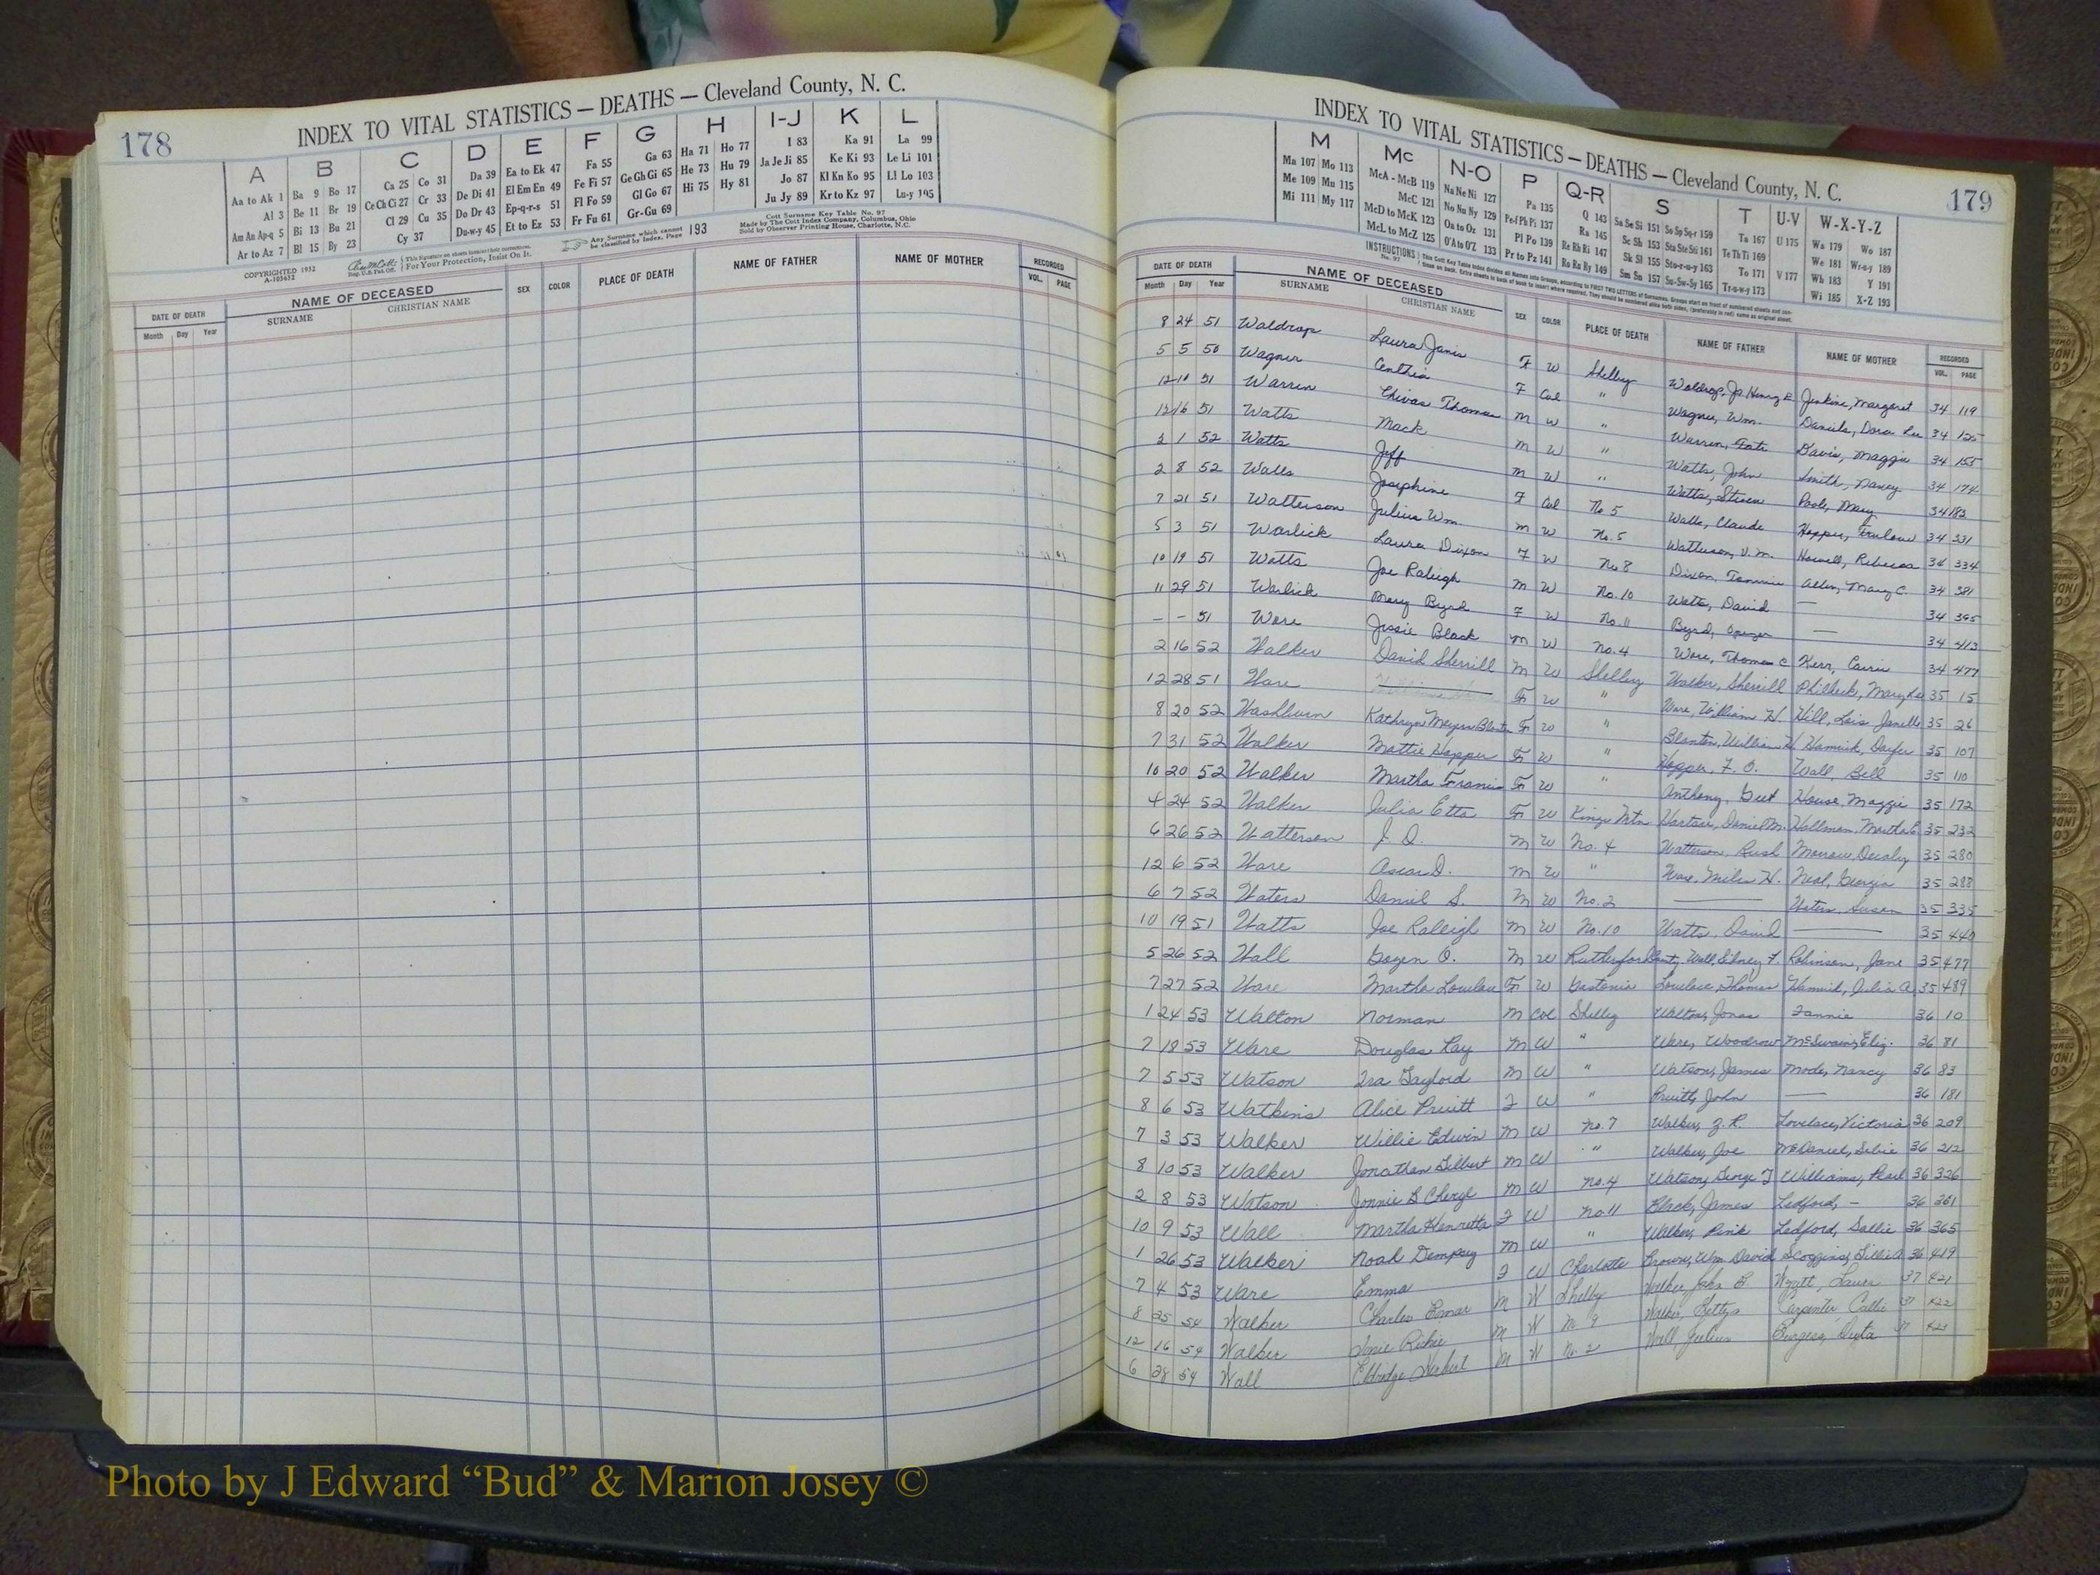 178
INDEX TO VITAL STATISTICS — DEATHS — Cleveland County, N. C.
A B C D E F G H I-J K L
Aa to Ak 1 Ba 9 Bo 17 Ca 25 Co 31 Da 39 Ea to Ek 47 Fa 55 Ga 63 Ha 71 Ho 77 I 83 Ka 91 La 99
Al 3 Be 11 Br 19 Ce Ch Ci 27 Cr 33 De Di 41 El Em En 49 Fe Fi 57 Ge Gh Gi 65 He 73 Hu 79 Ja Je Ji 85 Ke Ki 93 Le Li 101
Am An Ap-q 5 Bi 13 Bu 21 Cl 29 Cu 35 Do Dr 43 Ep-q-r-s 51 Fl Fo 59 Gl Go 67 Hi 75 Hy 81 Jo 87 Kl Kn Ko 95 Ll Lo 103
Ar to Az 7 Bl 15 By 23 Cy 37 Du-w-y 45 Et to Ez 53 Fr Fu 61 Gr-Gu 69 Ju Jy 89 Kr to Kz 97 Lu-y 105
COPYRIGHTED 1932
A-105632
This Signature on sheets insures their correctness.
For Your Protection, Insist On It.
Any Surname which cannot be classified by Index, Page 193
Cott Surname Key Table No. 97
Made by The Cott Index Company, Columbus, Ohio
Sold by Observer Printing House, Charlotte, N.C.
DATE OF DEATH NAME OF DECEASED SEX COLOR PLACE OF DEATH NAME OF FATHER NAME OF MOTHER RECORDED
Month Day Year SURNAME CHRISTIAN NAME VOL. PAGE
INDEX TO VITAL STATISTICS — DEATHS — Cleveland County, N. C.
179
M Mc N-O P Q-R S T U-V W-X-Y-Z
Ma 107 Mo 113 McA - McB 119 Na Ne Ni 127 Pa 135 Q 143 Sa Sc Si 151 So Sp Sq-r 159 Ta 167 U 175 Wa 179 Wo 187
Me 109 Mu 115 McC 121 No Nu Ny 129 Pe-f Ph Pi 137 Ra 145 Sc Sh 153 Sta Ste Sti 161 Te Th Ti 169 We 181 Wr-u-y 189
Mi 111 My 117 McD to McK 123 Oa to Oz 131 Pl Po 139 Re Rh Ri 147 Sk Sl 155 Sto-r-u-y 163 To 171 V 177 Wh 183 Y 191
McL to McZ 125 O'A to O'Z 133 Pr to Pz 141 Ro Ru Ry 149 Sm Sn 157 Su-Sw-Sy 165 Tr-u-w-y 173 Wi 185 X-Z 193
INSTRUCTIONS
DATE OF DEATH NAME OF DECEASED SEX COLOR PLACE OF DEATH NAME OF FATHER NAME OF MOTHER RECORDED
Month Day Year SURNAME CHRISTIAN NAME VOL. PAGE
8 24 51 Waldrop Laura Janis F W Shelby Waldrop, Jr. Henry Jenkins, Margaret 34 119
5 5 50 Wagner Centhia F Col " Wagner, Wm. Daniels, Dora Lee 34 125
12 10 51 Warren Chivas Thomas M W " Warren, Davis, Maggie 34 155
12 16 51 Watts Mack M W " Watts, John Smith, Nancy 34 174
1 52 Watts Jeff M W " Watts, Steven Mary 34 183
2 8 52 Josephine F Col No 5 Claude Hopper, 34 331
7 21 51 Watterson Julius Wm. M W No. 5 Watterson, Howell, Rebecca 34 334
5 3 51 Warlick Laura Dixon F W No 8 Dixon, Allen, Mary C. 34 381
10 19 51 Watts Joe Raleigh M W No. 10 Watts, David — 34 395
11 29 51 Warlick Mary Byrd F W No. 11 Byrd, — 34 413
– – 51 Ware Jessie Black M W No. 4 Ware, Thomas C Kerr, Carrie 34 477
2 16 52 Walker David Sherrill M W Shelby Walker, Sherrill Philbeck, Mary 35 15
12 28 51 Ware F W " Ware, William H. Hill, Lois Janelle 35 26
8 20 52 Washburn Kathryn Meyers Blanton F W " Blanton, William H. Hamrick, 35 107
7 31 52 Walker Mattie Hopper F W " Hopper, F. O. Wall, Bell 35 110
10 20 52 Walker Martha Francis F W " Anthony, House, Maggie 35 172
4 24 52 Walker Julia Etta F W Kings Mtn Daniel M. Hallman, Martha 35 232
6 26 52 Watterson J. D. M W No. 4 Watterson, Rush Morrow, 35 280
12 6 52 Ware Oscar D. M W " Ware, Miles H. Neal, Georgia 35 288
6 7 52 Waters Daniel S. M W No. 2 — Waters, Susan 35 335
10 19 51 Watts Joe Raleigh M W No. 10 Watts, David — 35 440
5 26 52 Wall O. M W Rutherford County Wall, Sidney F. Robinson, Jane 35 477
7 27 52 Ware Martha Lovelace F W Gastonia Lovelace, Thomas Hamrick, Julia A. 35 489
1 24 53 Walton Norman M Col Shelby Walton, Jonas Fannie 36 10
7 18 53 Ware Douglas Ray M W " Ware, Woodrow McSwain, Eliz. 36 81
7 5 53 Watson Ira Gaylord M W " Watson, James Mode, Nancy 36 83
8 6 53 Watkins Alice Pruitt F W " Pruitt, John — 36 181
7 3 53 Walker Willie Edwin M W No. 7 Walker, Z. R. Lovelace, Victoria 36 209
8 10 53 Walker Jonathan Gilbert M W " Walker, Joe McDaniel, 36 212
2 8 53 Watson Jonnie B Cheryl M W No. 4 Watson, George T Williams, Pearl 36 326
10 9 53 Wall Martha Henretta F W No. 11 Black, James Ledford, – 36 361
1 26 53 Walker Noah Dempsey M W " Walker, Pink Ledford, Sallie 36 365
7 4 53 Ware Emma F W Charlotte Brown, Wm. David Scoggins, Lillie A. 36 419
8 25 54 Walker Charles M W Shelby Walker, John B Wyatt, Laura 37 421
12 16 54 Walker M W No 9 Walker, Carpenter, Callie 37 422
6 28 54 Wall Eldridge Herbert M W No. 2 Wall, Julius Burgess, 37
Photo by J Edward “Bud” & Marion Josey ©